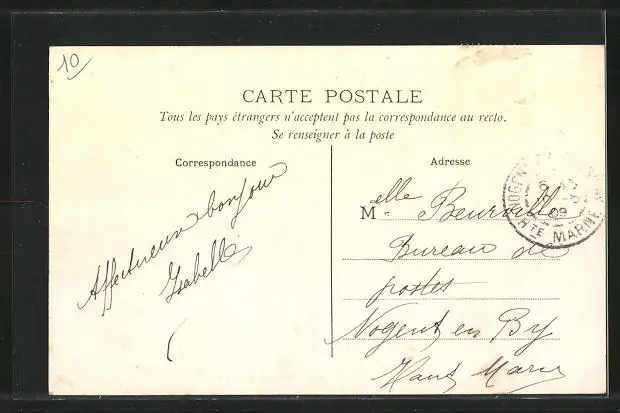 10
CARTE POSTALE
Tous les pays étrangers n'acceptent pas la correspondance au recto.
Se renseigner à la poste
Correspondance
Affectueux bonjour
Isabelle
Adresse
Melle Beurville
Bureau de
postes
Nogent en By
Haut Marn
NOGENT
09
HTE MARNE